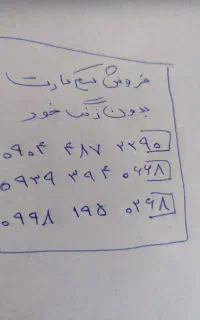 فروش سیم کارت
بدون زنگ خور
۰۹۰۴ ۴۸۷ ۲۲۹۰
۰۹۳۹ ۳۹۴ ۰۶۶۸
۰۹۹۸ ۱۹۵ ۰۲۶۸